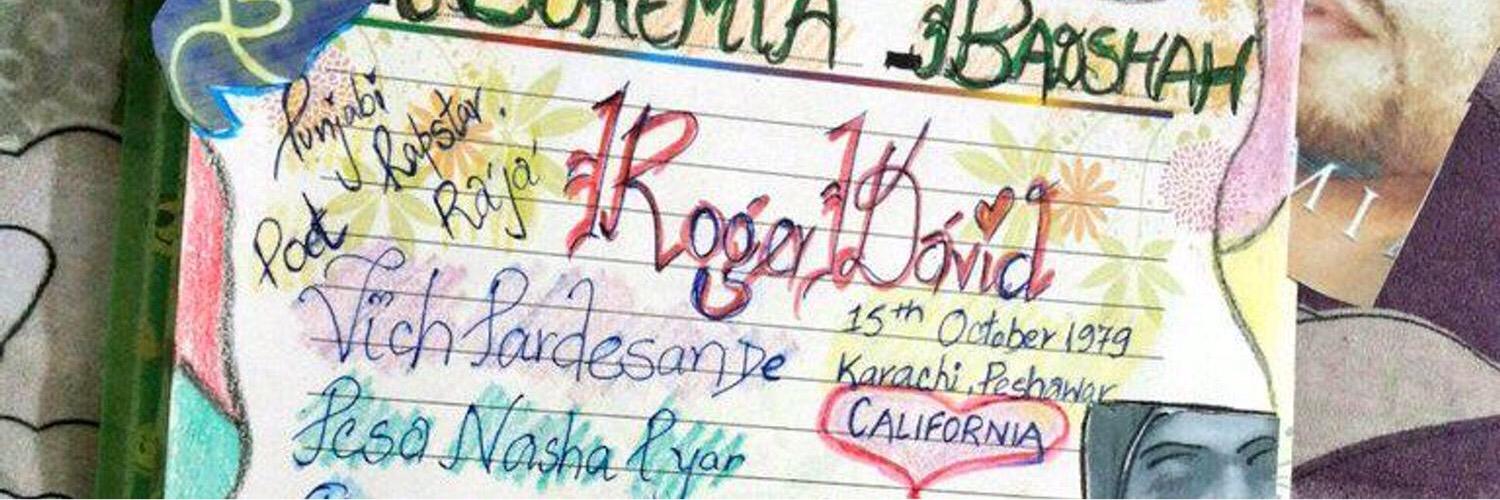 BOHEMIA BADSHAH
Punjabi
Rapstar.
Raja
Poet
Roger David
Vich Pardesan De
15th October 1979
Karachi, Peshawar
CALIFORNIA
Pesa Nasha Pyar